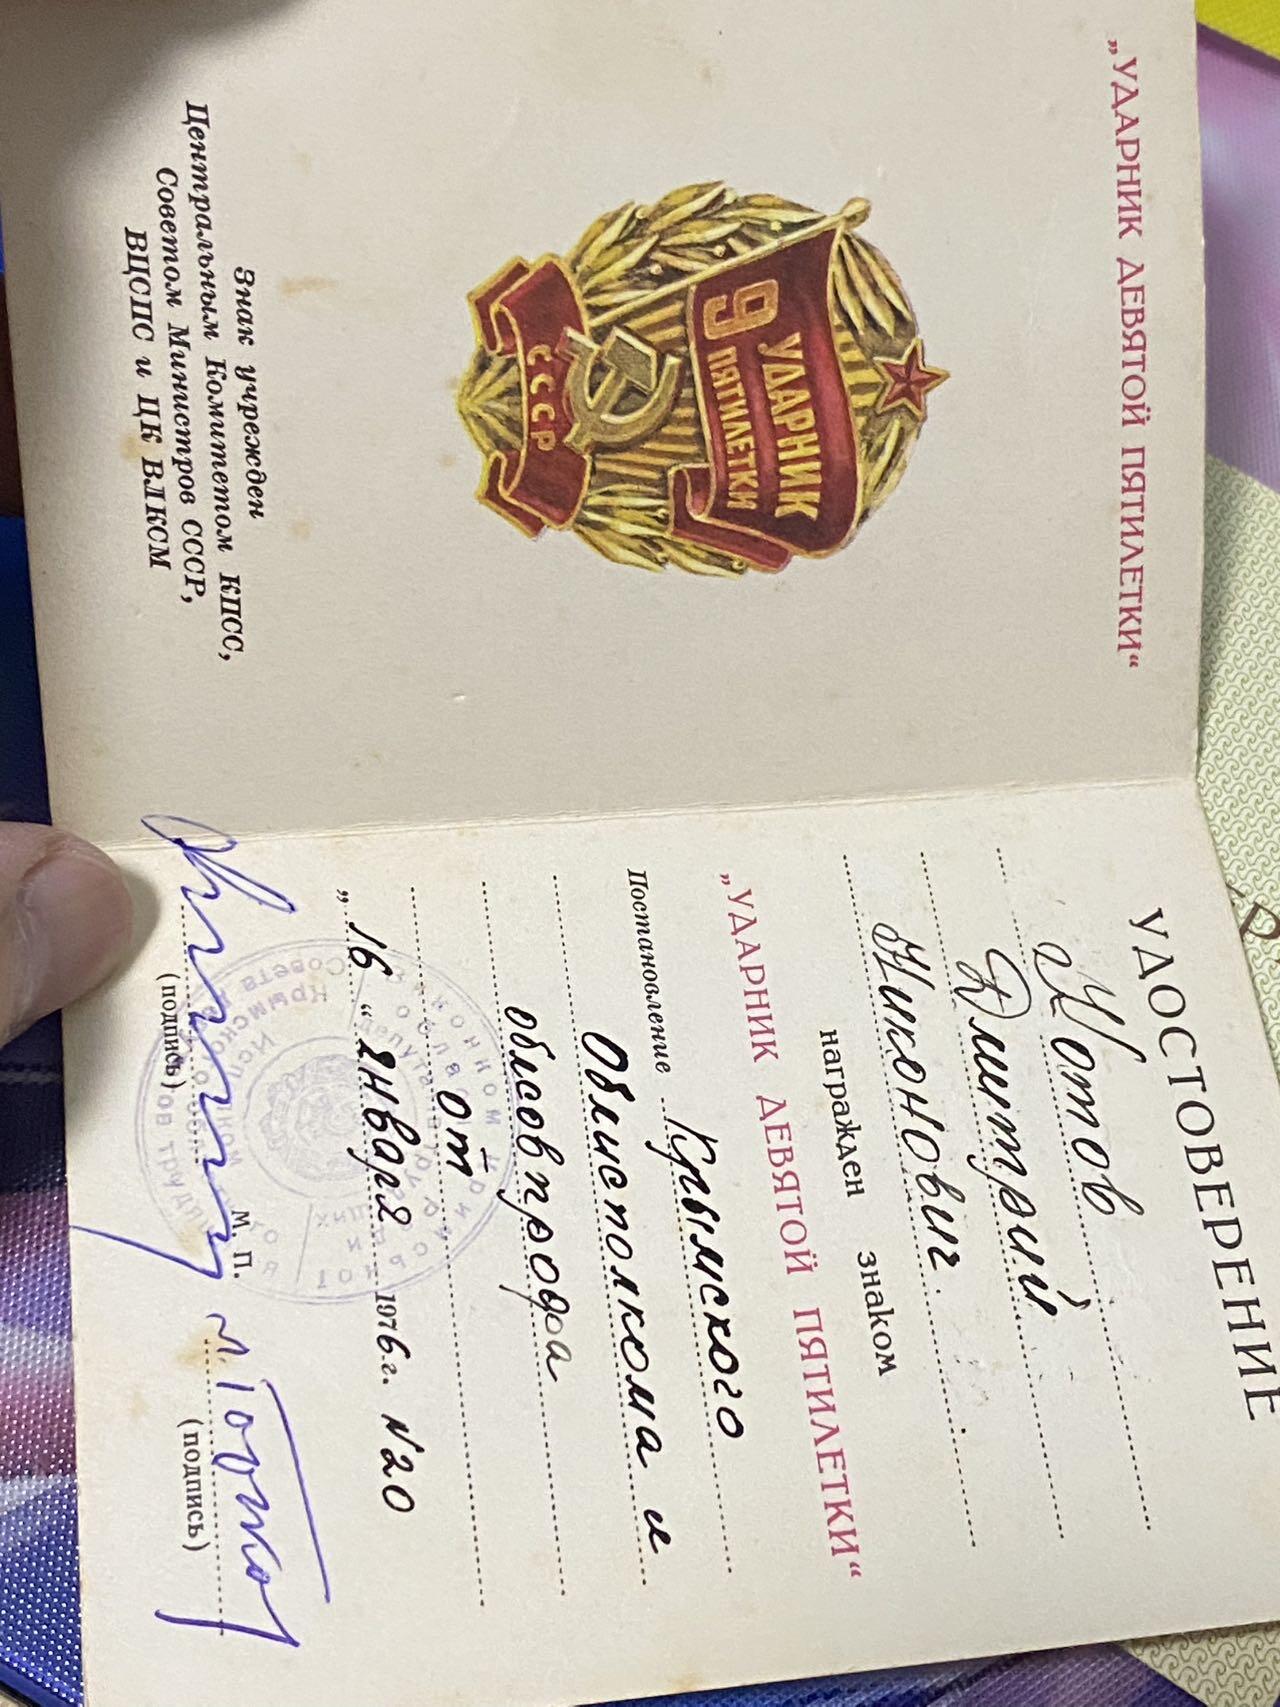 „УДАРНИК ДЕВЯТОЙ ПЯТИЛЕТКИ“
УДАРНИК
9 ПЯТИЛЕТКИ
СССР
Знак учрежден
Центральным Комитетом КПСС,
Советом Министров СССР,
ВЦСПС и ЦК ВЛКСМ
УДОСТОВЕРЕНИЕ
Котов
Дмитрий
Никонович
награжден знаком
„УДАРНИК ДЕВЯТОЙ ПЯТИЛЕТКИ“
Постановление Крымского
Облисполкома и
облсовпрофа
от
„16“ января 1976 г. N20
М. П.
(подпись) (подпись)